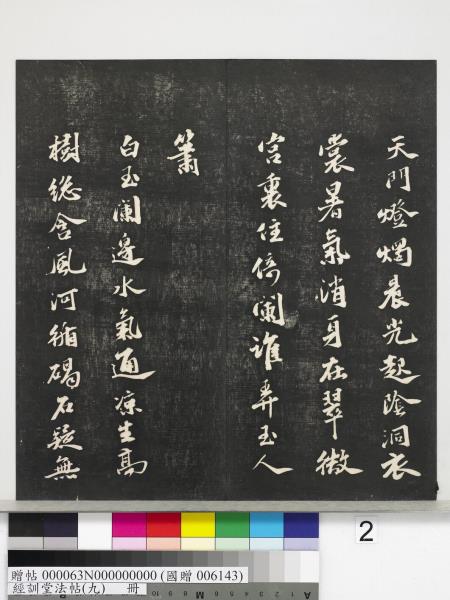 天門燈燭晨光起陰洞衣
裳暑氣消身在翠微
宮裏住倚闌誰弄玉人
簫
白玉闌邊水氣通凉生高
樹總含風河循碣石疑無
2
贈帖 000063N000000000 (國贈 006143)
經訓堂法帖(九) 冊